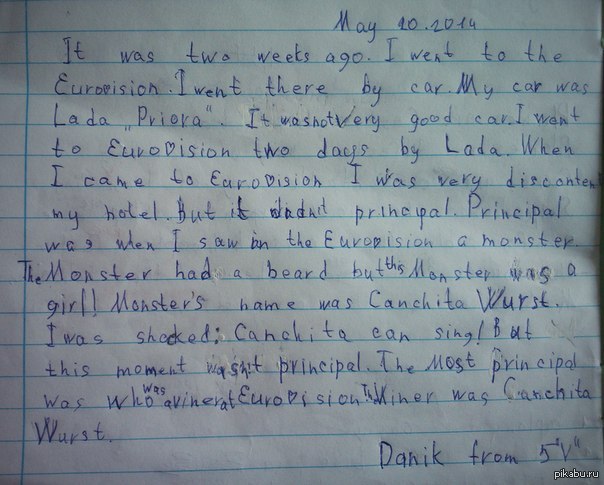 May 20.2014
It was two weeks ago. I went to the
Eurovision. I went there by car. My car was
Lada „Priora“. It wasnot very good car. I went
to Eurovision two days by Lada. When
I came to Eurovision I was very disconten
my hotel. But it didn't principal. Principal
was when I saw in the Eurovision a monster.
The Monster had a beard but this Monster was a
girl! Monster's name was Canchita Wurst.
I was shocked: Canchita can sing! But
this moment wasn't principal. The Most principal
was who was a viner at Eurovision. The Viner was Canchita
Wurst.
Danik from 5"V"
pikabu.ru